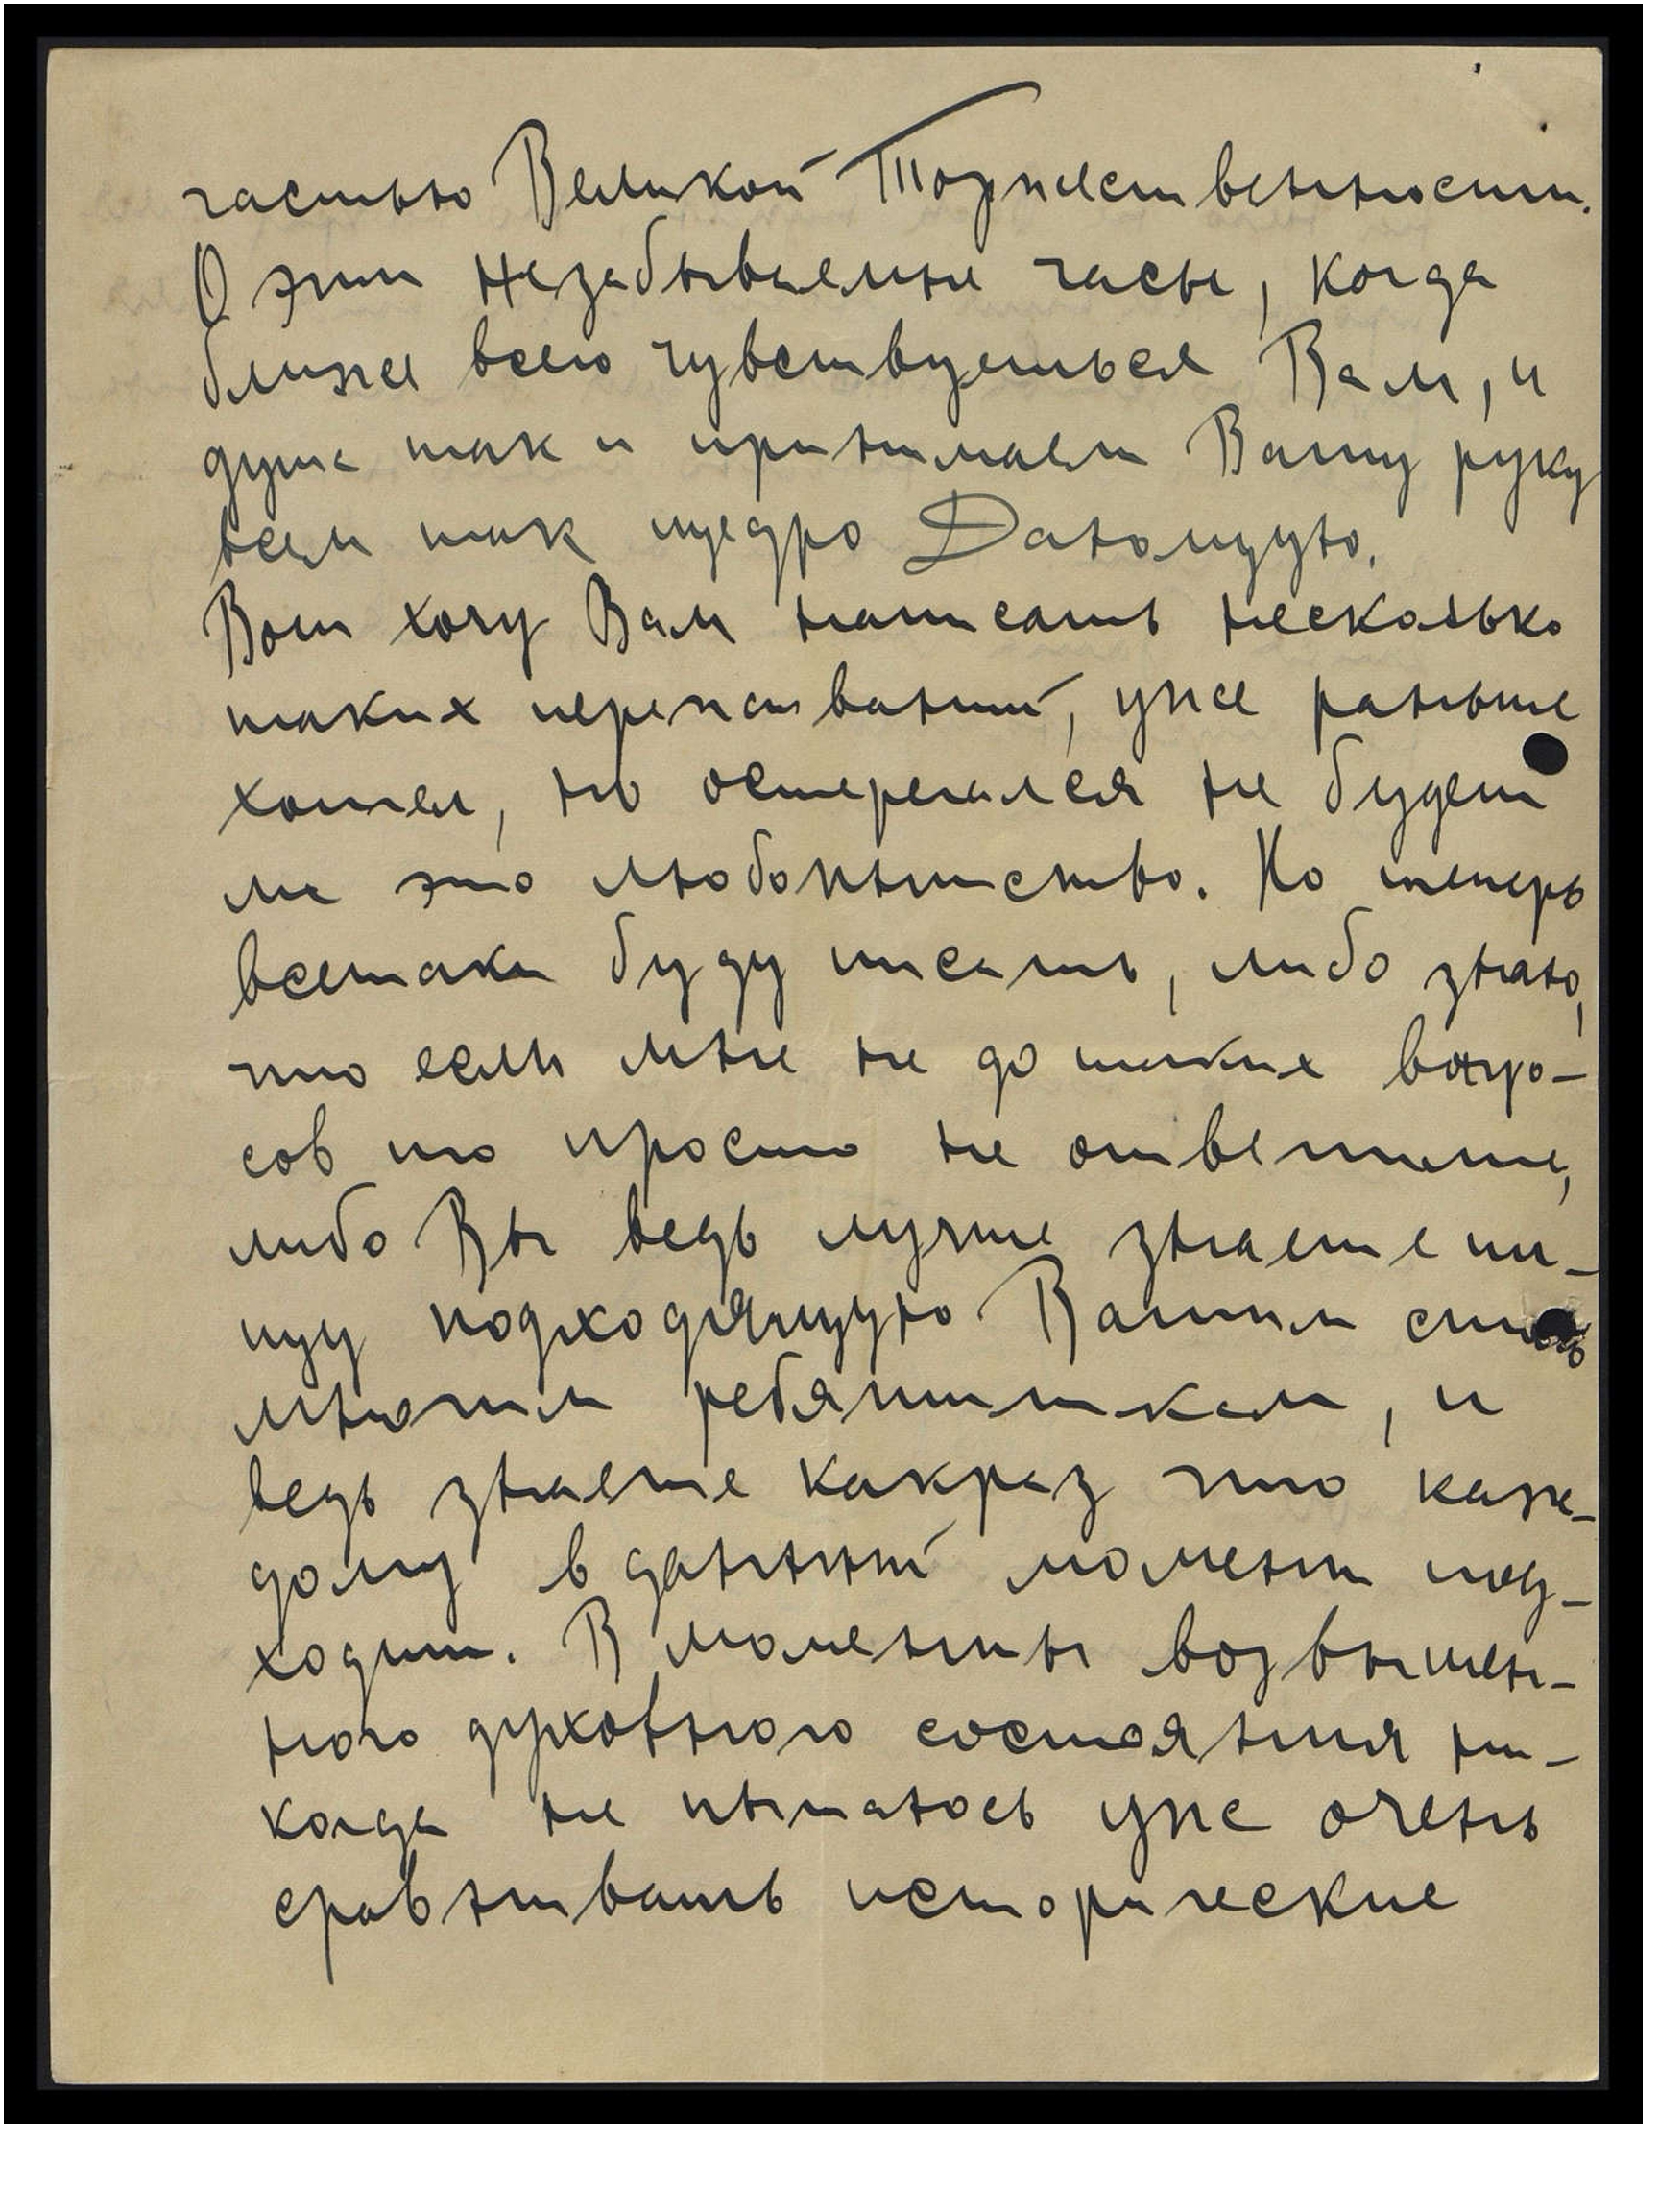 частью Великой Торжественности.
О эти незабываемые часы, когда
ближе всего чувствуешься Вам, и
душа так и принимает Вашу руку
всем так щедро Дающую.
Вот хочу Вам написать несколько
таких переживаний, уже раньше
хотел, но остерегался не будет
ли это любопытство. Но теперь
всетаки буду писать, либо знаю,
что если мне не до таких вопро-
сов то просто не ответите,
либо Вы ведь лучше знаете пи-
щу подходящую Вашим столь
многим ребятишкам, и
ведь знаете какраз что каж-
дому в данный момент под-
ходит. В моменты возвышен-
ного духовного состояния ни-
когда не пытаюсь уже очень
сравнивать исторические